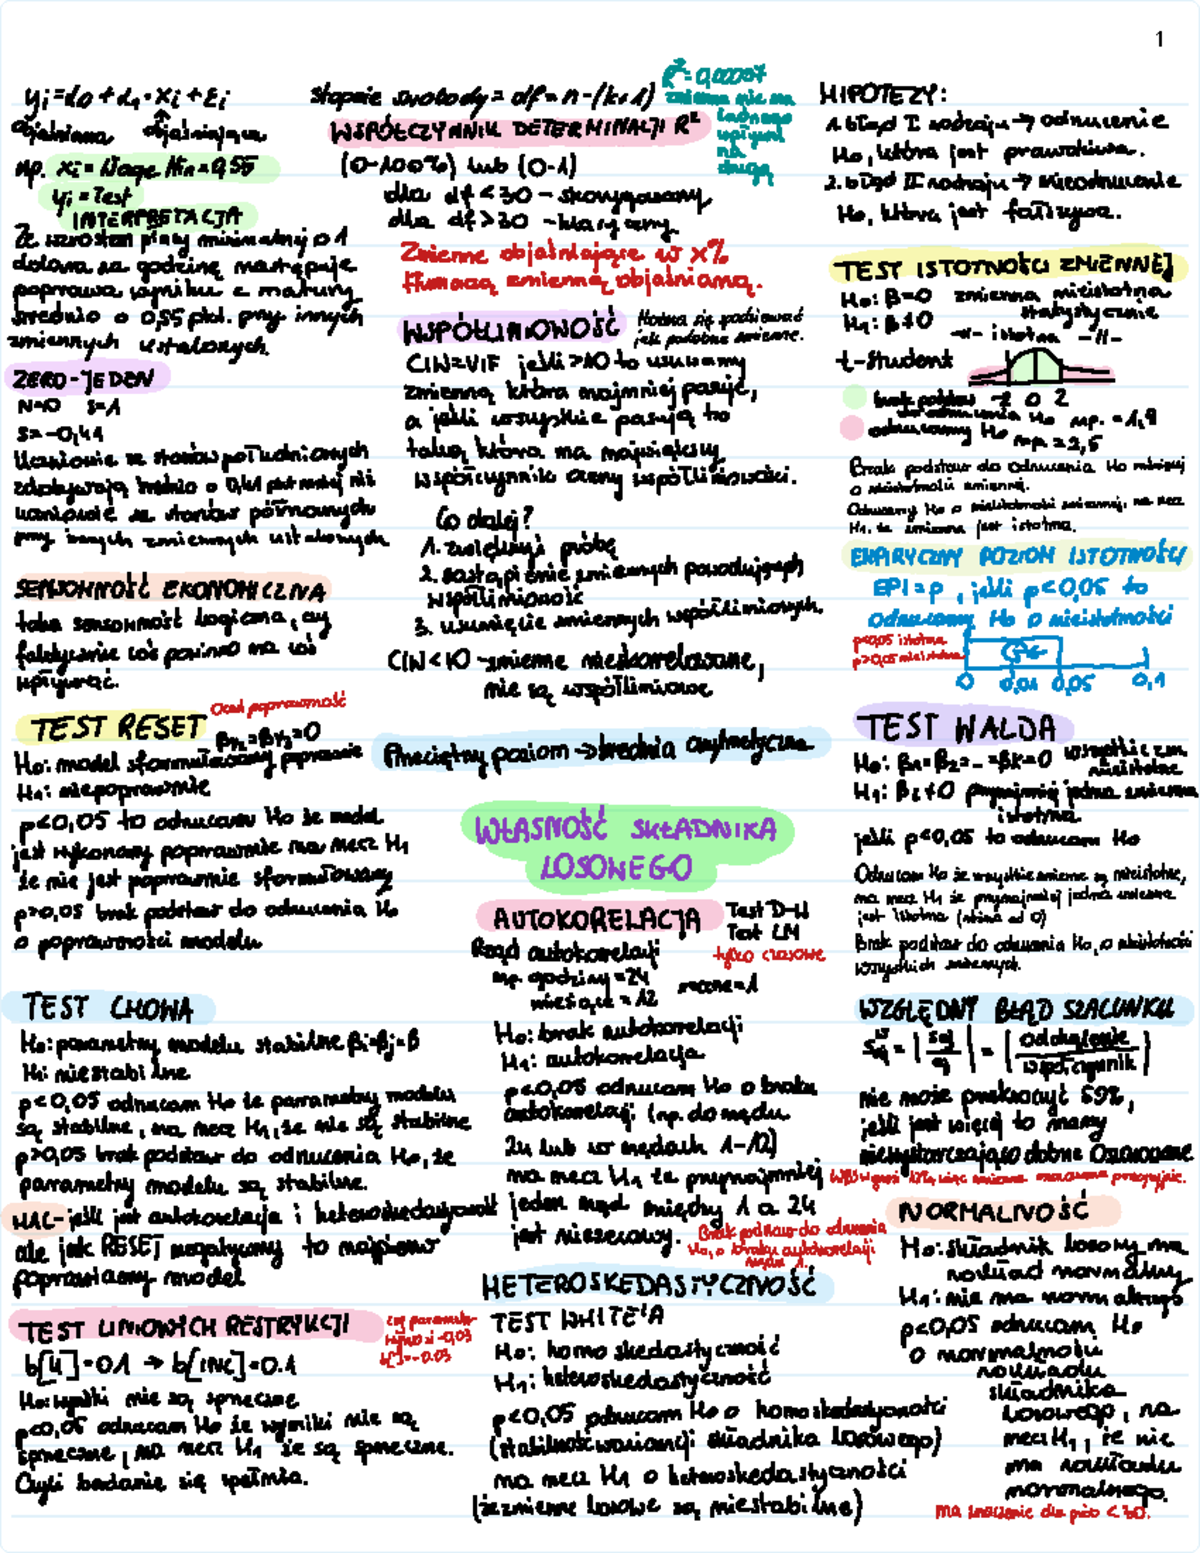 1
yi = α0 + α1 · xi + εi
objaśniana objaśniająca
np. xi = Wage Min = 0,55
yi = Test
INTERPRETACJA
Ze wzrostem płacy minimalnej o 1
dolara za godzinę następuje
poprawa wyniku z matury
średnio o 0,55 pkt. przy innych
zmiennych ustalonych.
ZERO-JEDEN
N=0 S=1
S=-0,41
Uczniowie ze stanów południowych
zdobywają średnio o 0,41 pkt mniej niż
uczniowie ze stanów północnych
przy innych zmiennych ustalonych
SENSOWNOŚĆ EKONOMICZNA
taka sensowność logiczna, czy
faktycznie coś powinno na coś
wpływać.
TEST RESET
Ocena poprawność
βγ2=βγ3=0
H0: model sformułowany poprawnie
H1: niepoprawnie
p<0,05 to odrzucam H0 że model
jest wykonany poprawnie na rzecz H1
że nie jest poprawnie sformułowany
p>0,05 brak podstaw do odrzucenia H0
o poprawności modelu
TEST CHOWA
H0: parametry modelu stabilne βi=βj=β
H1: niestabilne
p<0,05 odrzucam H0 że parametry modelu
są stabilne, na rzecz H1, że nie są stabilne
p>0,05 brak podstaw do odrzucenia H0, że
parametry modelu są stabilne.
HAC - jeśli jest autokorelacja i heteroskedastyczność
ale jak RESET negatywny to najpierw
poprawiamy model
TEST LINIOWYCH RESTRYKCJI
czy parametr
równa si -0,03
b[]=-0.03
b[4]=0.1 → b[INC]=0.1
H0: wyniki nie są sprzeczne
p<0,05 odrzucam H0 że wyniki nie są
sprzeczne, na rzecz H1 że są sprzeczne.
Czyli badanie się spełnia.
stopnie swobody = df = n-(k+1)
WSPÓŁCZYNNIK DETERMINACJI R²
R²=0,00007
zmienna nie ma
żadnego
wpływu
na
drugą
(0-100%) lub (0-1)
dla df < 30 - skorygowany
dla df > 30 - klasyczny
Zmienne objaśniające w x%
tłumaczą zmienną objaśnianą.
WSPÓŁLINIOWOŚĆ
Można się spodziewać
jak podobne zmienne.
CIW=VIF jeśli >10 to usuwamy
zmienną która najmniej pasuje,
a jeśli wszystkie pasują to
taką która ma największy
współczynnik oceny współliniowości.
Co dalej?
1. zwiększyć próbę
2. zastąpienie zmiennych powodujących
współliniowość
3. usunięcie zmiennych współliniowych.
CIW<10 - zmienne nieskorelowane,
nie są współliniowe
Przeciętny poziom → średnia arytmetyczna
WŁASNOŚĆ SKŁADNIKA
LOSOWEGO
AUTOKORELACJA
Test D-W
Test LM
tylko czasowe
Rząd autokorelacji
np. godziny = 24
miesiące = 12 roczne=1
H0: brak autokorelacji
H1: autokorelacja
p<0,05 odrzucam H0 o braku
autokorelacji (np. do rzędu
24 lub w rzędach 1-12)
na rzecz H1 że przynajmniej
jeden rząd między 1 a 24
jest niezerowy.
Brak podstaw do odrzucenia
H0, o braku autokorelacji
rzędu 1.
HETEROSKEDASTYCZNOŚĆ
TEST WHITE'A
H0: homoskedastyczność
H1: heteroskedastyczność
p<0,05 odrzucam H0 o homoskedastyczności
(stabilność wariancji składnika losowego)
na rzecz H1 o heteroskedastyczności
(że zmienne losowe są niestabilne)
HIPOTEZY:
1. błąd I rodzaju → odrzucenie
H0, która jest prawdziwa.
2. błąd II rodzaju → nieodrzucenie
H0, która jest fałszywa.
TEST ISTOTNOŚCI ZMIENNEJ
H0: β=0 zmienna nieistotna
statystycznie
H1: β≠0 -"- istotna -"-
t-student
-2 0 2
brak podstaw
do odrzucenia H0 np. = 1,9
odrzucamy H0 np. = 2,5
Brak podstaw do odrzucenia H0 mówiącej
o nieistotności zmiennej.
Odrzucamy H0 o nieistotności zmiennej, na rzecz
H1, że zmienna jest istotna.
EMPIRYCZNY POZIOM ISTOTNOŚCI
EPI=p, jeśli p<0,05 to
odrzucamy H0 o nieistotności
p<0,05 istotna
p>0,05 nieistotna
0 0,01 0,05 0,1
TEST WALDA
H0: β1=β2=...=βk=0 wszystkie zm.
nieistotne
H1: βi≠0 przynajmniej jedna zmienna
istotna
jeśli p<0,05 to odrzucam H0
Odrzucam H0 że wszystkie zmienne są nieistotne,
na rzecz H1 że przynajmniej jedna zmienna
jest istotna (różna od 0)
Brak podstaw do odrzucenia H0, o nieistotności
wszystkich zmiennych.
WZGLĘDNY BŁĄD SZACUNKU
= | | = | odchylenie / współczynnik |
nie może przekroczyć 50%,
jeśli jest więcej to mamy
niewystarczająco dobre oszacowane
NORMALNOŚĆ
H0: składnik losowy ma
rozkład normalny
H1: nie ma normalnego
p<0,05 odrzucam H0
o normalności
rozkładu
składnika
losowego, na
rzecz H1, że nie
ma rozkładu
normalnego.
ma znaczenie dla prób <30.